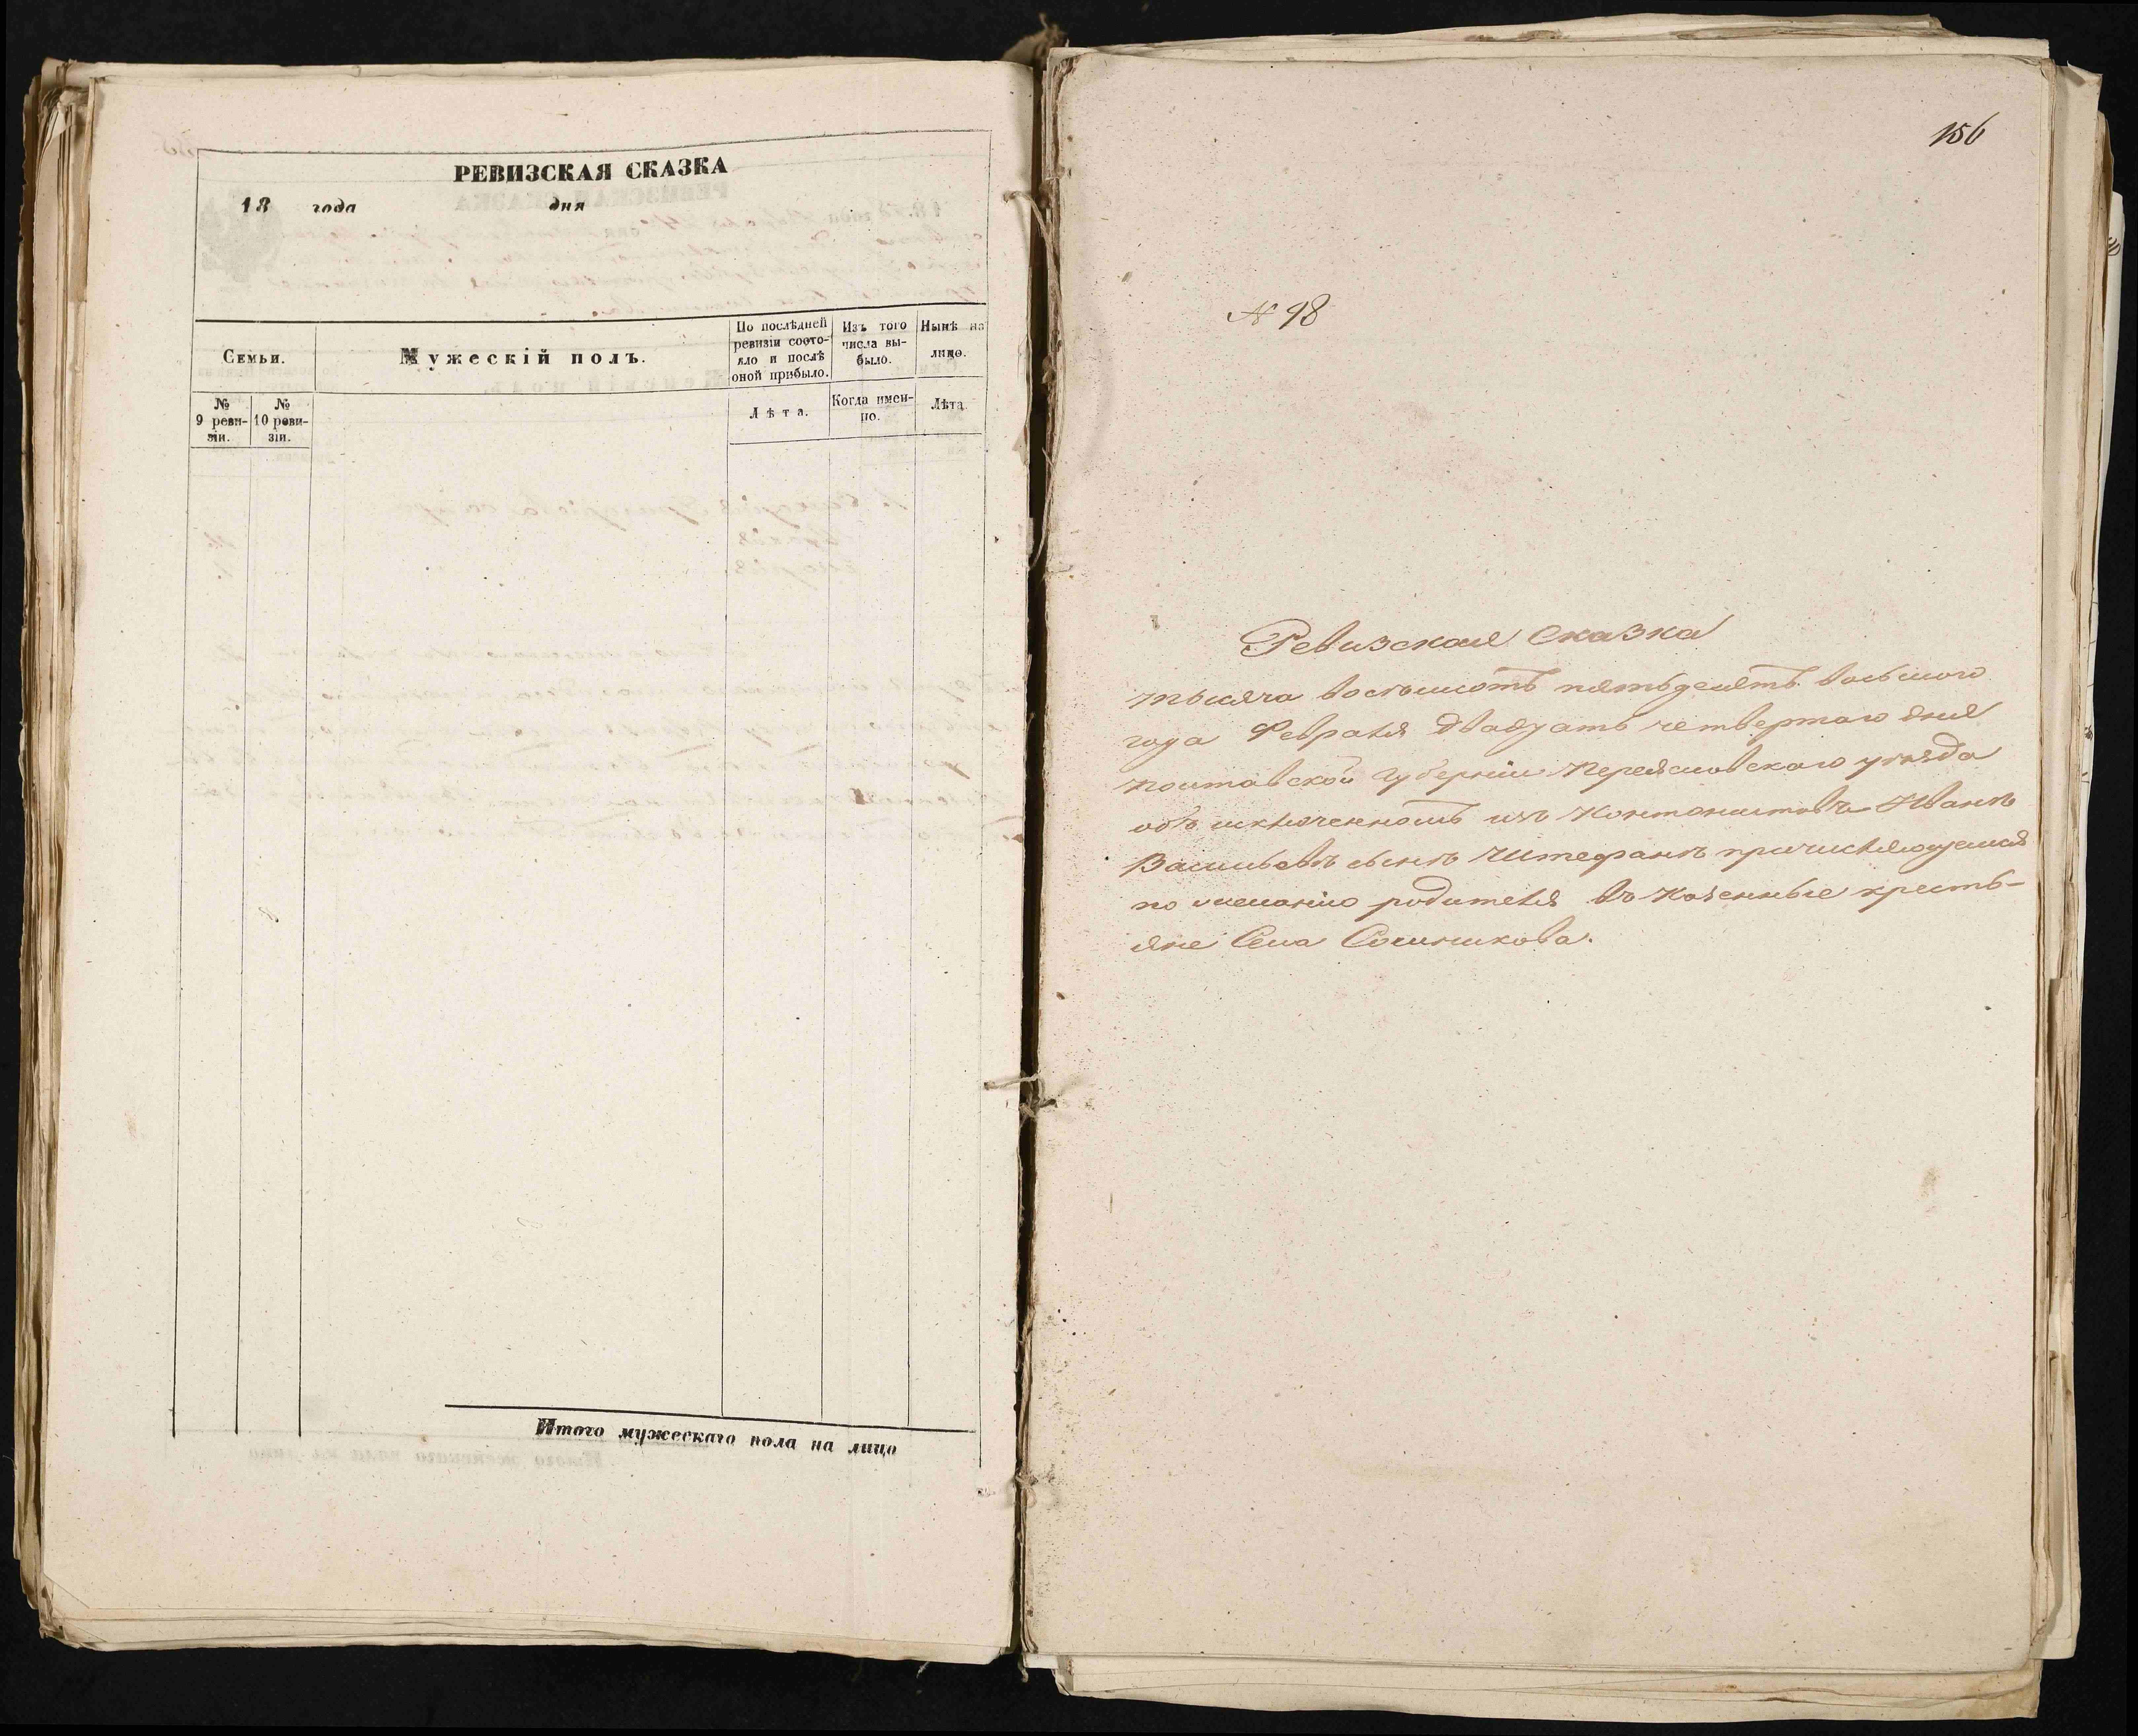 РЕВИЗСКАЯ СКАЗКА
18 года дня
Семьи.
Мужескій полъ.
По послѣдней ревизіи состояло и послѣ оной прибыло.
Изъ того числа выбыло.
Нынѣ на лицо.
№ 9 ревизіи.
№ 10 ревизіи.
Лѣта.
Когда именно.
Лѣта
Итого мужескаго пола на лицо
156
N 98
Ревизская Сказка
тысяча восемьсотъ пятьдесятъ восьмого
года Февраля двадцать четвертаго дня
Полтавской Губерніи Переяславскаго уѣзда
объ исключенномъ изъ Контонистовъ Иванѣ
Васильевѣ сынѣ Штефанѣ причисляющемся
по желанію родителя въ Козенные кресть-
яне Села Сошникова.